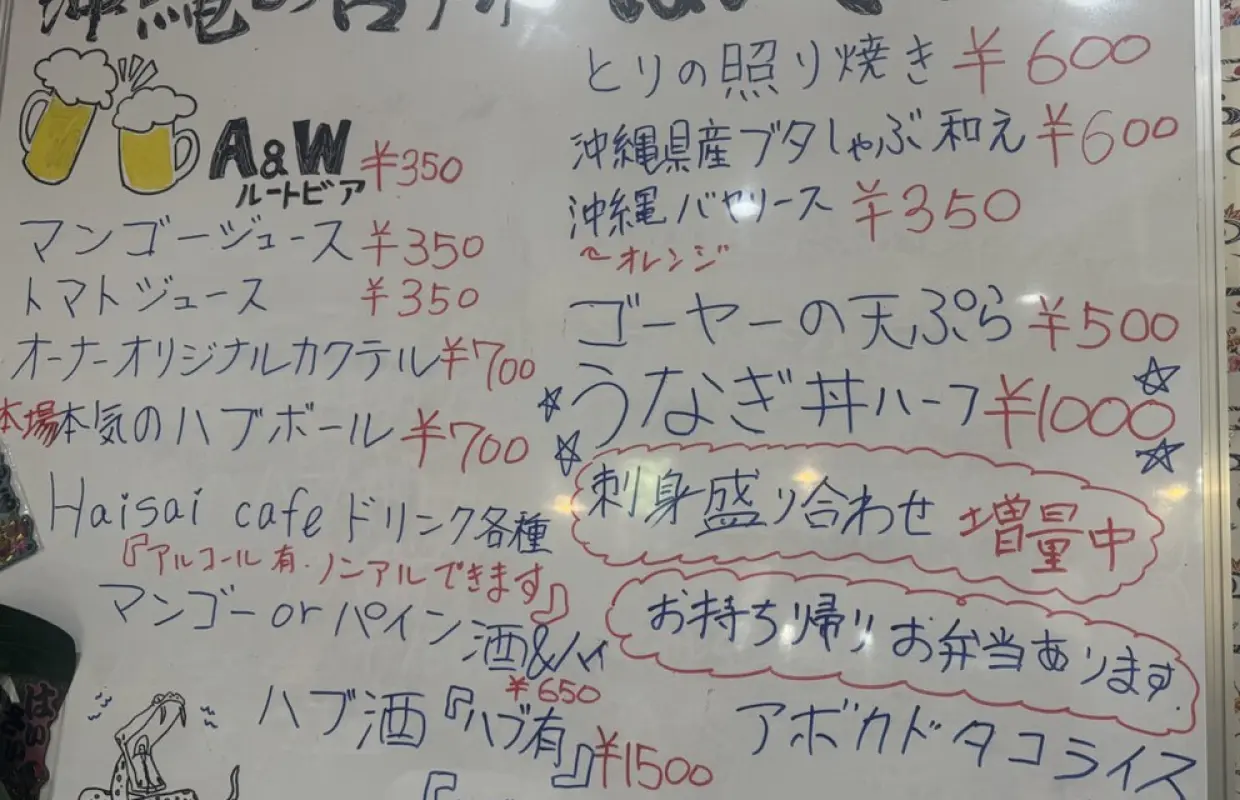 沖縄の台所
A&W ¥350
ルートビア
マンゴージュース ¥350
トマトジュース ¥350
オーナーオリジナルカクテル ¥700
本場本気のハブボール ¥700
Haisai cafe ドリンク各種
『アルコール有・ノンアルできます』
マンゴー or パイン 酒&ハイ
¥650
ハブ酒『ハブ有』¥1500
とりの照り焼き ¥600
沖縄県産ブタしゃぶ和え ¥600
沖縄バヤリース ¥350
〜オレンジ
ゴーヤーの天ぷら ¥500
うなぎ丼ハーフ ¥1000
刺身盛り合わせ 増量中
お持ち帰りお弁当あります.
アボカドタコライス